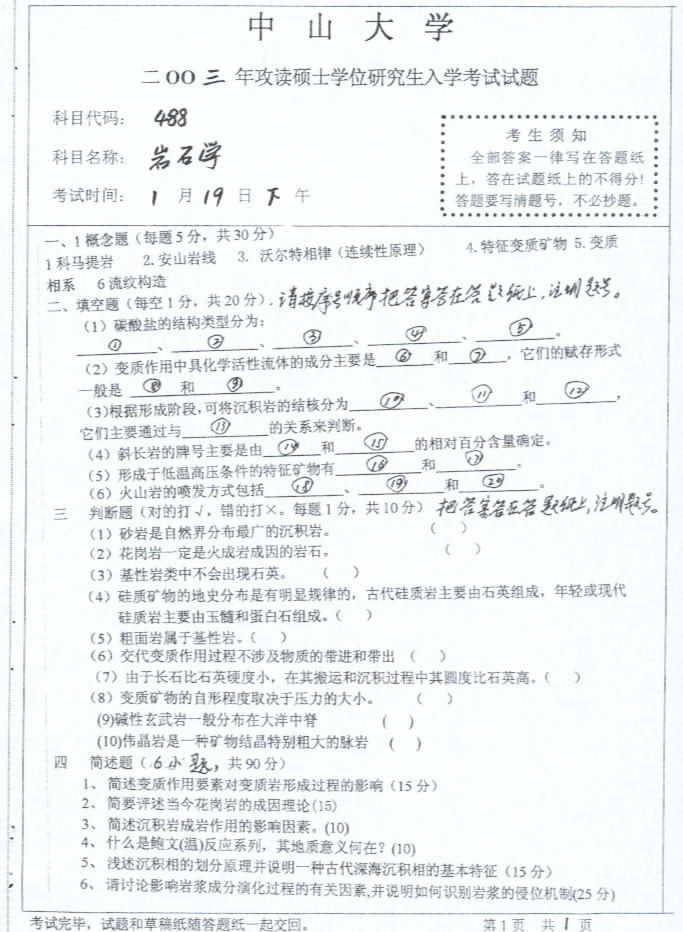 中山大学
二OO三年攻读硕士学位研究生入学考试试题
科目代码： 488
科目名称： 岩石学
考试时间： 1 月 19 日 下 午
考 生 须 知
全部答案一律写在答题纸
上，答在试题纸上的不得分！
答题要写清题号，不必抄题。
一、1 概念题（每题 5 分，共 30 分）
1 科马提岩 2.安山岩线 3. 沃尔特相律（连续性原理） 4.特征变质矿物 5.变质
相系 6 流纹构造
二、填空题（每空 1 分，共 20 分）. 请按序号顺序把答案答在答题纸上，注明题号。
（1）碳酸盐的结构类型分为：
① 、 ② 、 ③ 、 ④ 、 ⑤ 。
（2）变质作用中具化学活性流体的成分主要是 ⑥ 和 ⑦ ，它们的赋存形式
一般是 ⑧ 和 ⑨ 。
（3)根据形成阶段,可将沉积岩的结核分为 ⑩ 、 ⑪ 和 ⑫ ，
它们主要通过与 ⑬ 的关系来判断。
（4）斜长岩的牌号主要是由 ⑭ 和 ⑮ 的相对百分含量确定。
（5）形成于低温高压条件的特征矿物有 ⑯ 和 ⑰ 。
（6）火山岩的喷发方式包括 ⑱ 、 ⑲ 和 ⑳ 。
三 判断题（对的打√，错的打×。每题 1 分，共 10 分） 把答案答在答题纸上，注明题号。
（1）砂岩是自然界分布最广的沉积岩。 （ ）
（2）花岗岩一定是火成岩成因的岩石。 （ ）
（3）基性岩类中不会出现石英。 （ ）
（4）硅质矿物的地史分布是有明显规律的，古代硅质岩主要由石英组成，年轻或现代
硅质岩主要由玉髓和蛋白石组成。（ ）
（5）粗面岩属于基性岩。（ ）
（6）交代变质作用过程不涉及物质的带进和带出 （ ）
（7）由于长石比石英硬度小，在其搬运和沉积过程中其圆度比石英高。（ ）
（8）变质矿物的自形程度取决于压力的大小。 （ ）
(9)碱性玄武岩一般分布在大洋中脊 （ ）
(10)伟晶岩是一种矿物结晶特别粗大的脉岩 （ ）
四 简述题（6小题，共 90 分）
1、 简述变质作用要素对变质岩形成过程的影响（15 分）
2、 简要评述当今花岗岩的成因理论(15)
3、 简述沉积岩成岩作用的影响因素。(10)
4、 什么是鲍文(温)反应系列，其地质意义何在？(10)
5、 浅述沉积相的划分原理并说明一种古代深海沉积相的基本特征（15 分）
6、 请讨论影响岩浆成分演化过程的有关因素,并说明如何识别岩浆的侵位机制(25 分)
考试完毕，试题和草稿纸随答题纸一起交回。 第 1 页 共 1 页